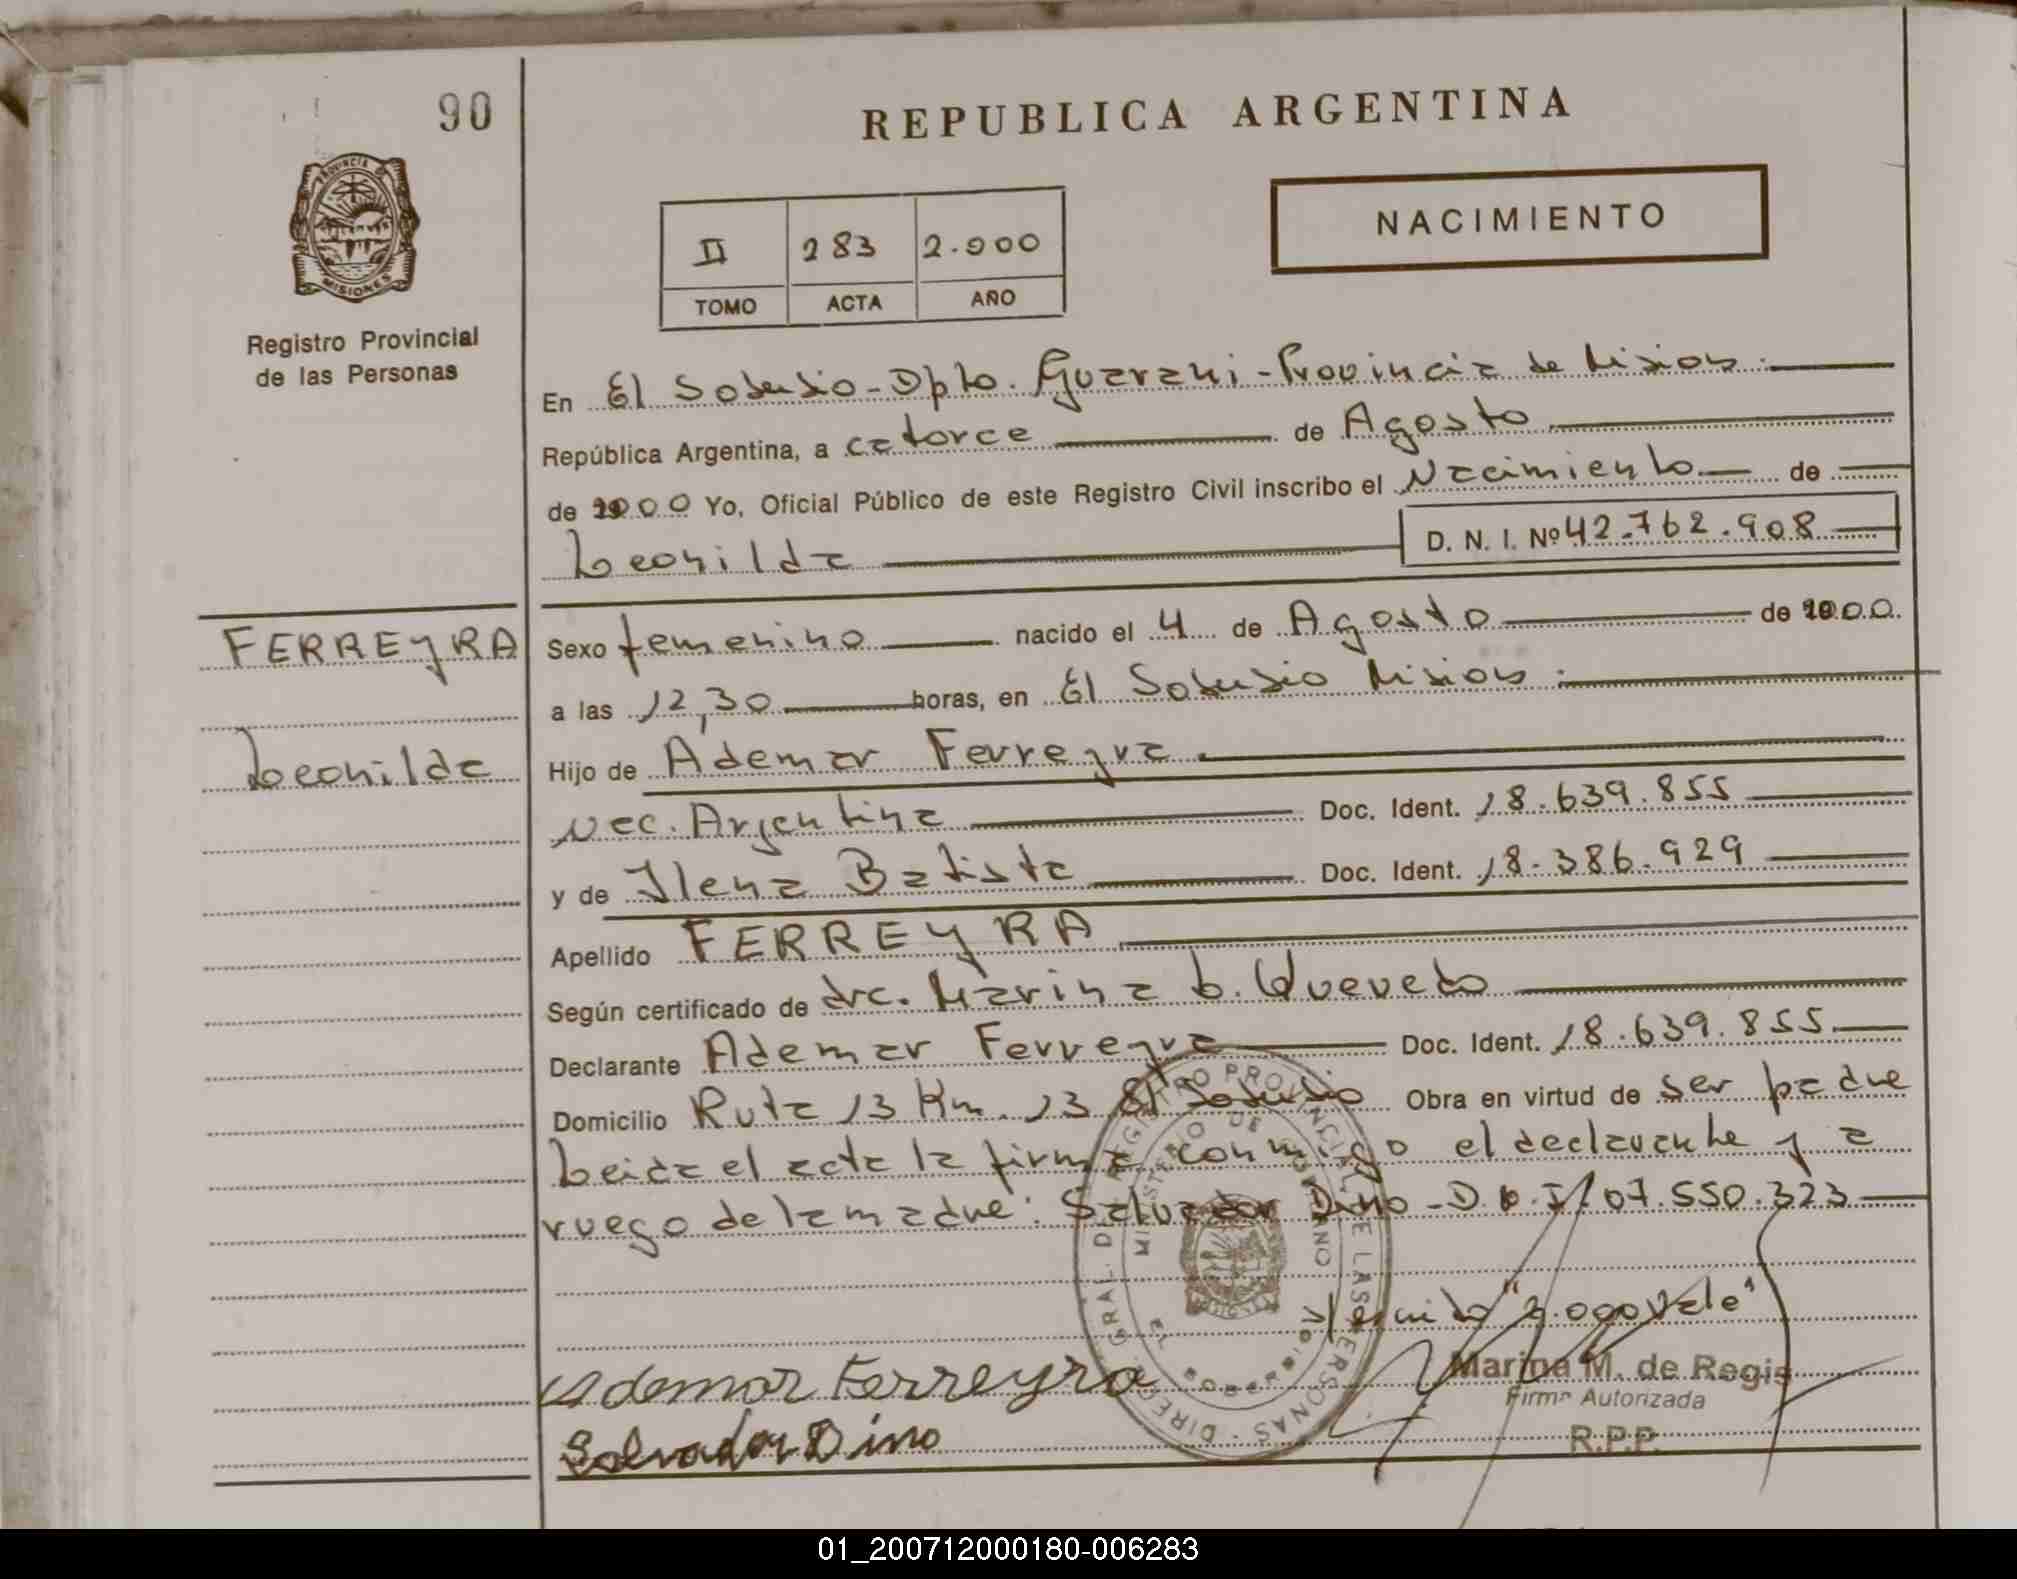 90
REPUBLICA ARGENTINA
PROVINCIA DE
MISIONES
NACIMIENTO
II 283 2.000
TOMO ACTA AÑO
Registro Provincial
de las Personas
En El Soberbio - Dpto. Guarani - Provincia de Misiones.
República Argentina, a catorce de Agosto
de 2000 Yo, Oficial Público de este Registro Civil inscribo el Nacimiento de
Leonilda D. N. I. Nº 42.762.908
FERREYRA
Leonilda
Sexo femenino nacido el 4 de Agosto de 2000.
a las 12,30 horas, en El Soberbio Misiones.
Hijo de Ademar Ferreyra.
Nac. Argentina Doc. Ident. 18.639.855
y de Ilena Batista Doc. Ident. 18.386.929
Apellido FERREYRA
Según certificado de dra. Marina L. Quevedo
Declarante Ademar Ferreyra Doc. Ident. 18.639.855
Domicilio Ruta 13 Km. 13 El Soberbio Obra en virtud de ser padre
Leida el acta la firma conmigo el declarante y a
ruego de la madre: Salvador Dino - D.N.I. 07.550.323
"2.000 Vale"
DIREC. GRAL. DEL REGISTRO PROVINCIAL DE LAS PERSONAS
MINISTERIO DE GOBIERNO
Ademar Ferreyra
Marina M. de Regis
Firma Autorizada
Salvador Dino
R.P.P.
01_200712000180-006283